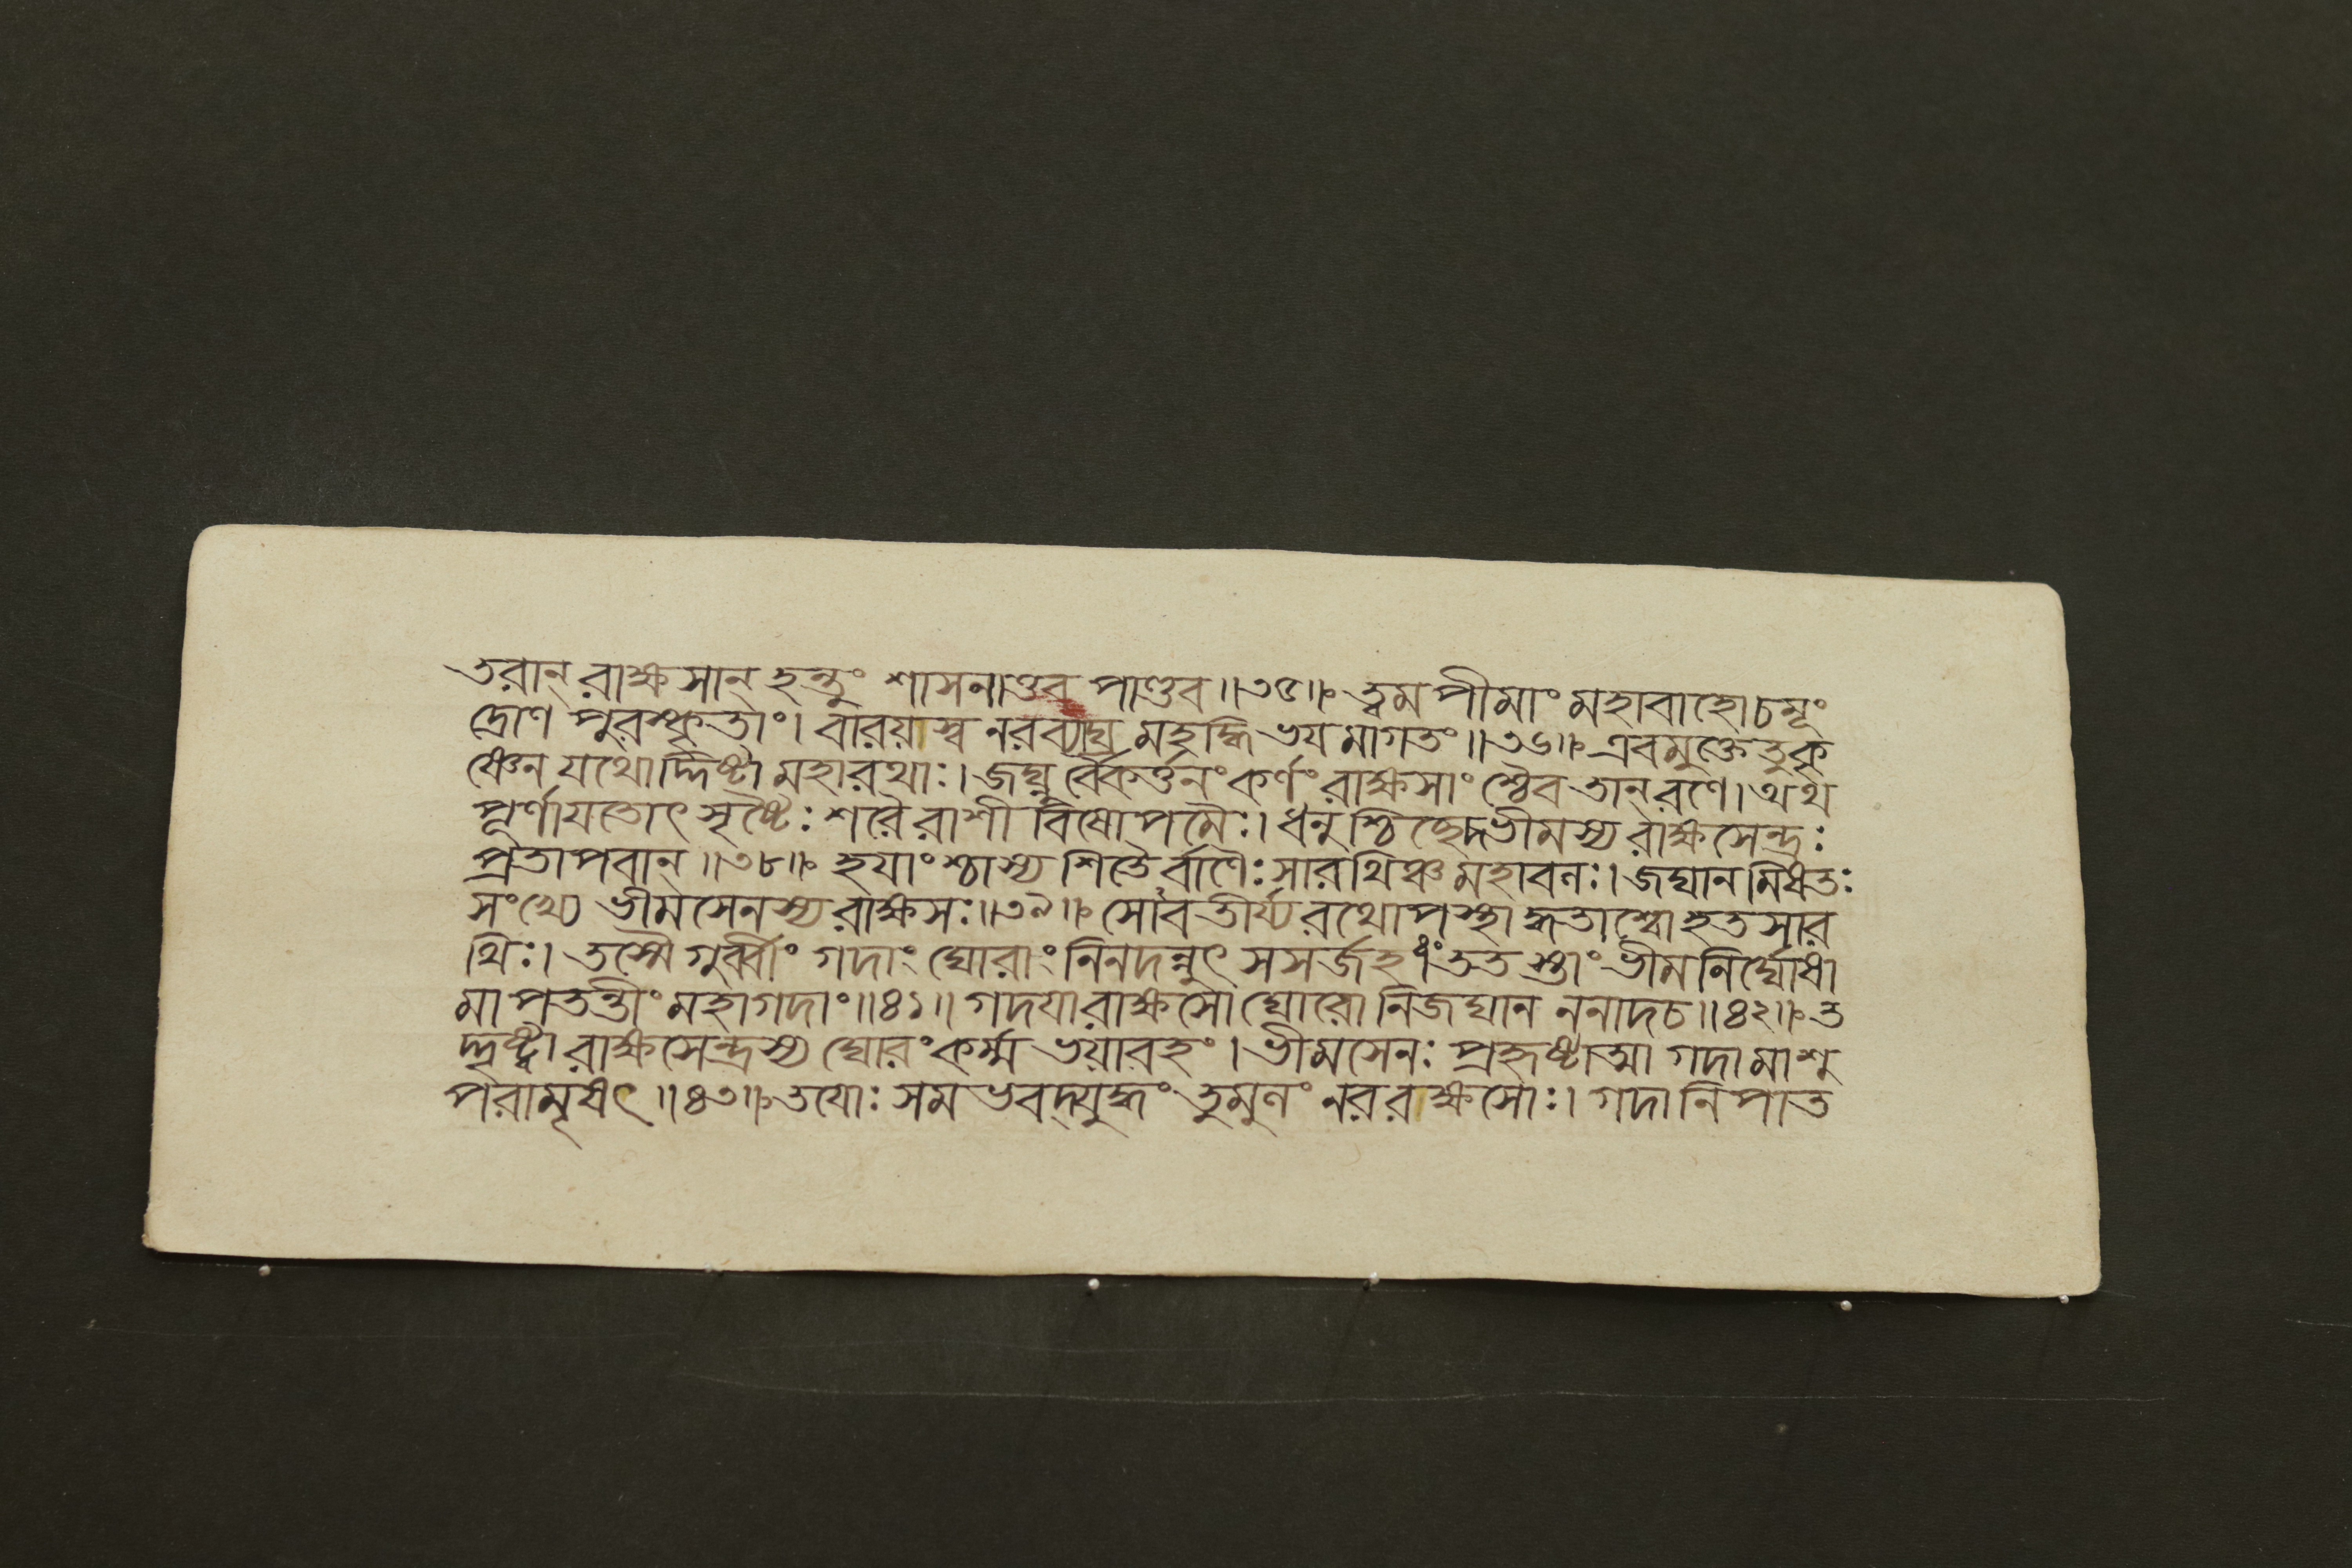 তরান্ রাক্ষসান্ হন্তুং শাসনাত্তব পাণ্ডব॥৩৫॥ ত্বমপীমাং মহাবাহো চমূং
দ্রোণ পুরস্কৃতাং। বারয়াস্ব নরব্যাঘ্র মহদ্ধি ভয়মাগতং॥৩৬॥ এবমুক্তে তু কৃ
ষ্ণেন যথোর্দ্দিষ্টা মহারথাঃ। জঘ্নুর্বৈকর্ত্তনং কর্ণং রাক্ষসাংশ্চৈব তান্ রণে। অথ
পূর্ণায়তোৎসৃষ্টৈঃ শরৈরাশীবিষোপমৈঃ। ধনুশ্চিচ্ছেদ ভীমস্য রাক্ষসেন্দ্রঃ
প্রতাপবান্॥৩৮॥ হয়াংশ্চাস্য শিতৈর্বাণৈঃ সারথিঞ্চ মহাবলঃ। জঘান মিষতঃ
সংখ্যে ভীমসেনস্য রাক্ষসঃ॥৩৯॥ সোঽবতীর্য্য রথোপস্থাদ্ধতাশ্বো হতসার
থিঃ। তস্মৈ গুর্ব্বীং গদাং ঘোরাং নিনদন্নুৎসসর্জ হ॥৪০॥ ততস্তাং ভীমনির্ঘোষা
মাপতন্তীং মহাগদাং॥৪১॥ গদয়া রাক্ষসো ঘোরো নিজঘান ননাদ চ॥৪২॥ ত
দ্দৃষ্ট্বা রাক্ষসেন্দ্রস্য ঘোরং কর্ম্ম ভয়াবহং। ভীমসেনঃ প্রহৃষ্টাত্মা গদামাশু
পরামৃষৎ॥৪৩॥ তয়োঃ সমভবদ্যুদ্ধং তুমুলং নররাক্ষসোঃ। গদানিপাত